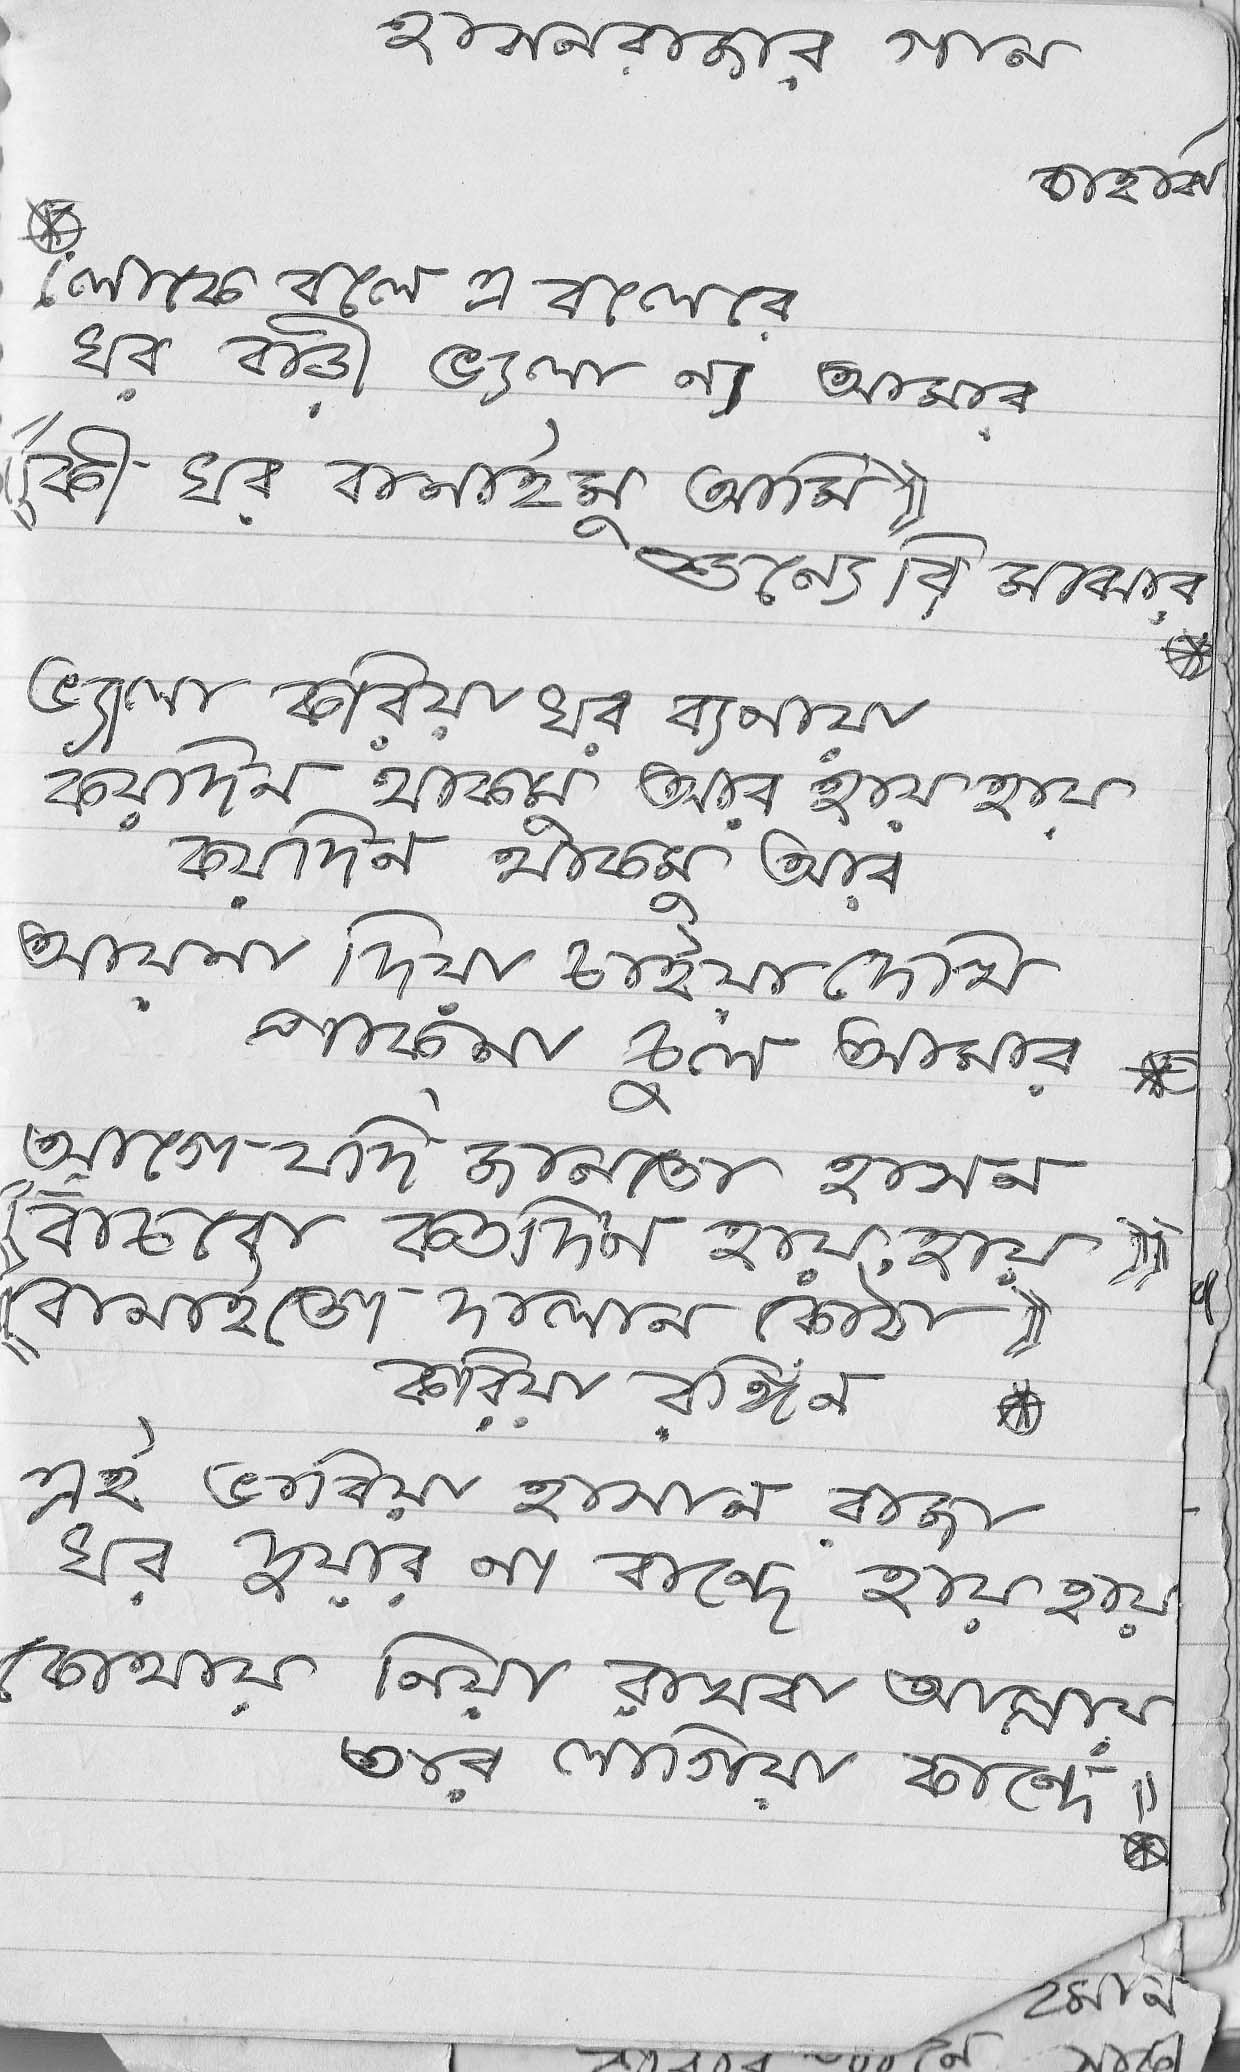 হাসনরাজার গান
লোকে বলে এ বলেরে
ঘর বাড়ী ভ্যলা নয় আমার
কী ঘর বানাইমু আমি॥
শুন্যেরি মাঝার
ভ্যালা করিয়া ঘর ব্যনায়া
কয়দিন থাকমু আর হায় হায়
কয়দিন থাকমু আর
আয়না দিয়া চাইয়া দেখি
পাকনা চুল আমার
আগে যদি জানতো হাসন
বাঁচবো কতদিন হায়, হায় ॥
বানাইতো দালান কোঠা ॥
করিয়া রঙ্গিন
এই ভাবিয়া হাসান রাজা
ঘর দুয়ার না বান্দে হায় হায়
কোথায় নিয়া রাখবা আল্লায়
তার লাগিয়া কান্দে ॥